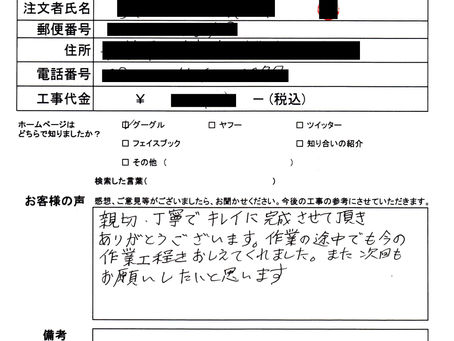 注文者氏名
郵便番号
住所
電話番号
工事代金 ￥ ー(税込)
ホームページは
どちらで知りましたか？
☑グーグル □ヤフー □ツイッター
□フェイスブック □知り合いの紹介
□その他 ( )
検索した言葉( )
お客様の声 感想、ご意見等がございましたら、お聞かせください。今後の工事の参考にさせていただきます。
親切・丁寧でキレイに完成させて頂き
ありがとうございます。作業の途中でも今の
作業工程をおしえてくれました。また次回も
お願いしたいと思います
備考